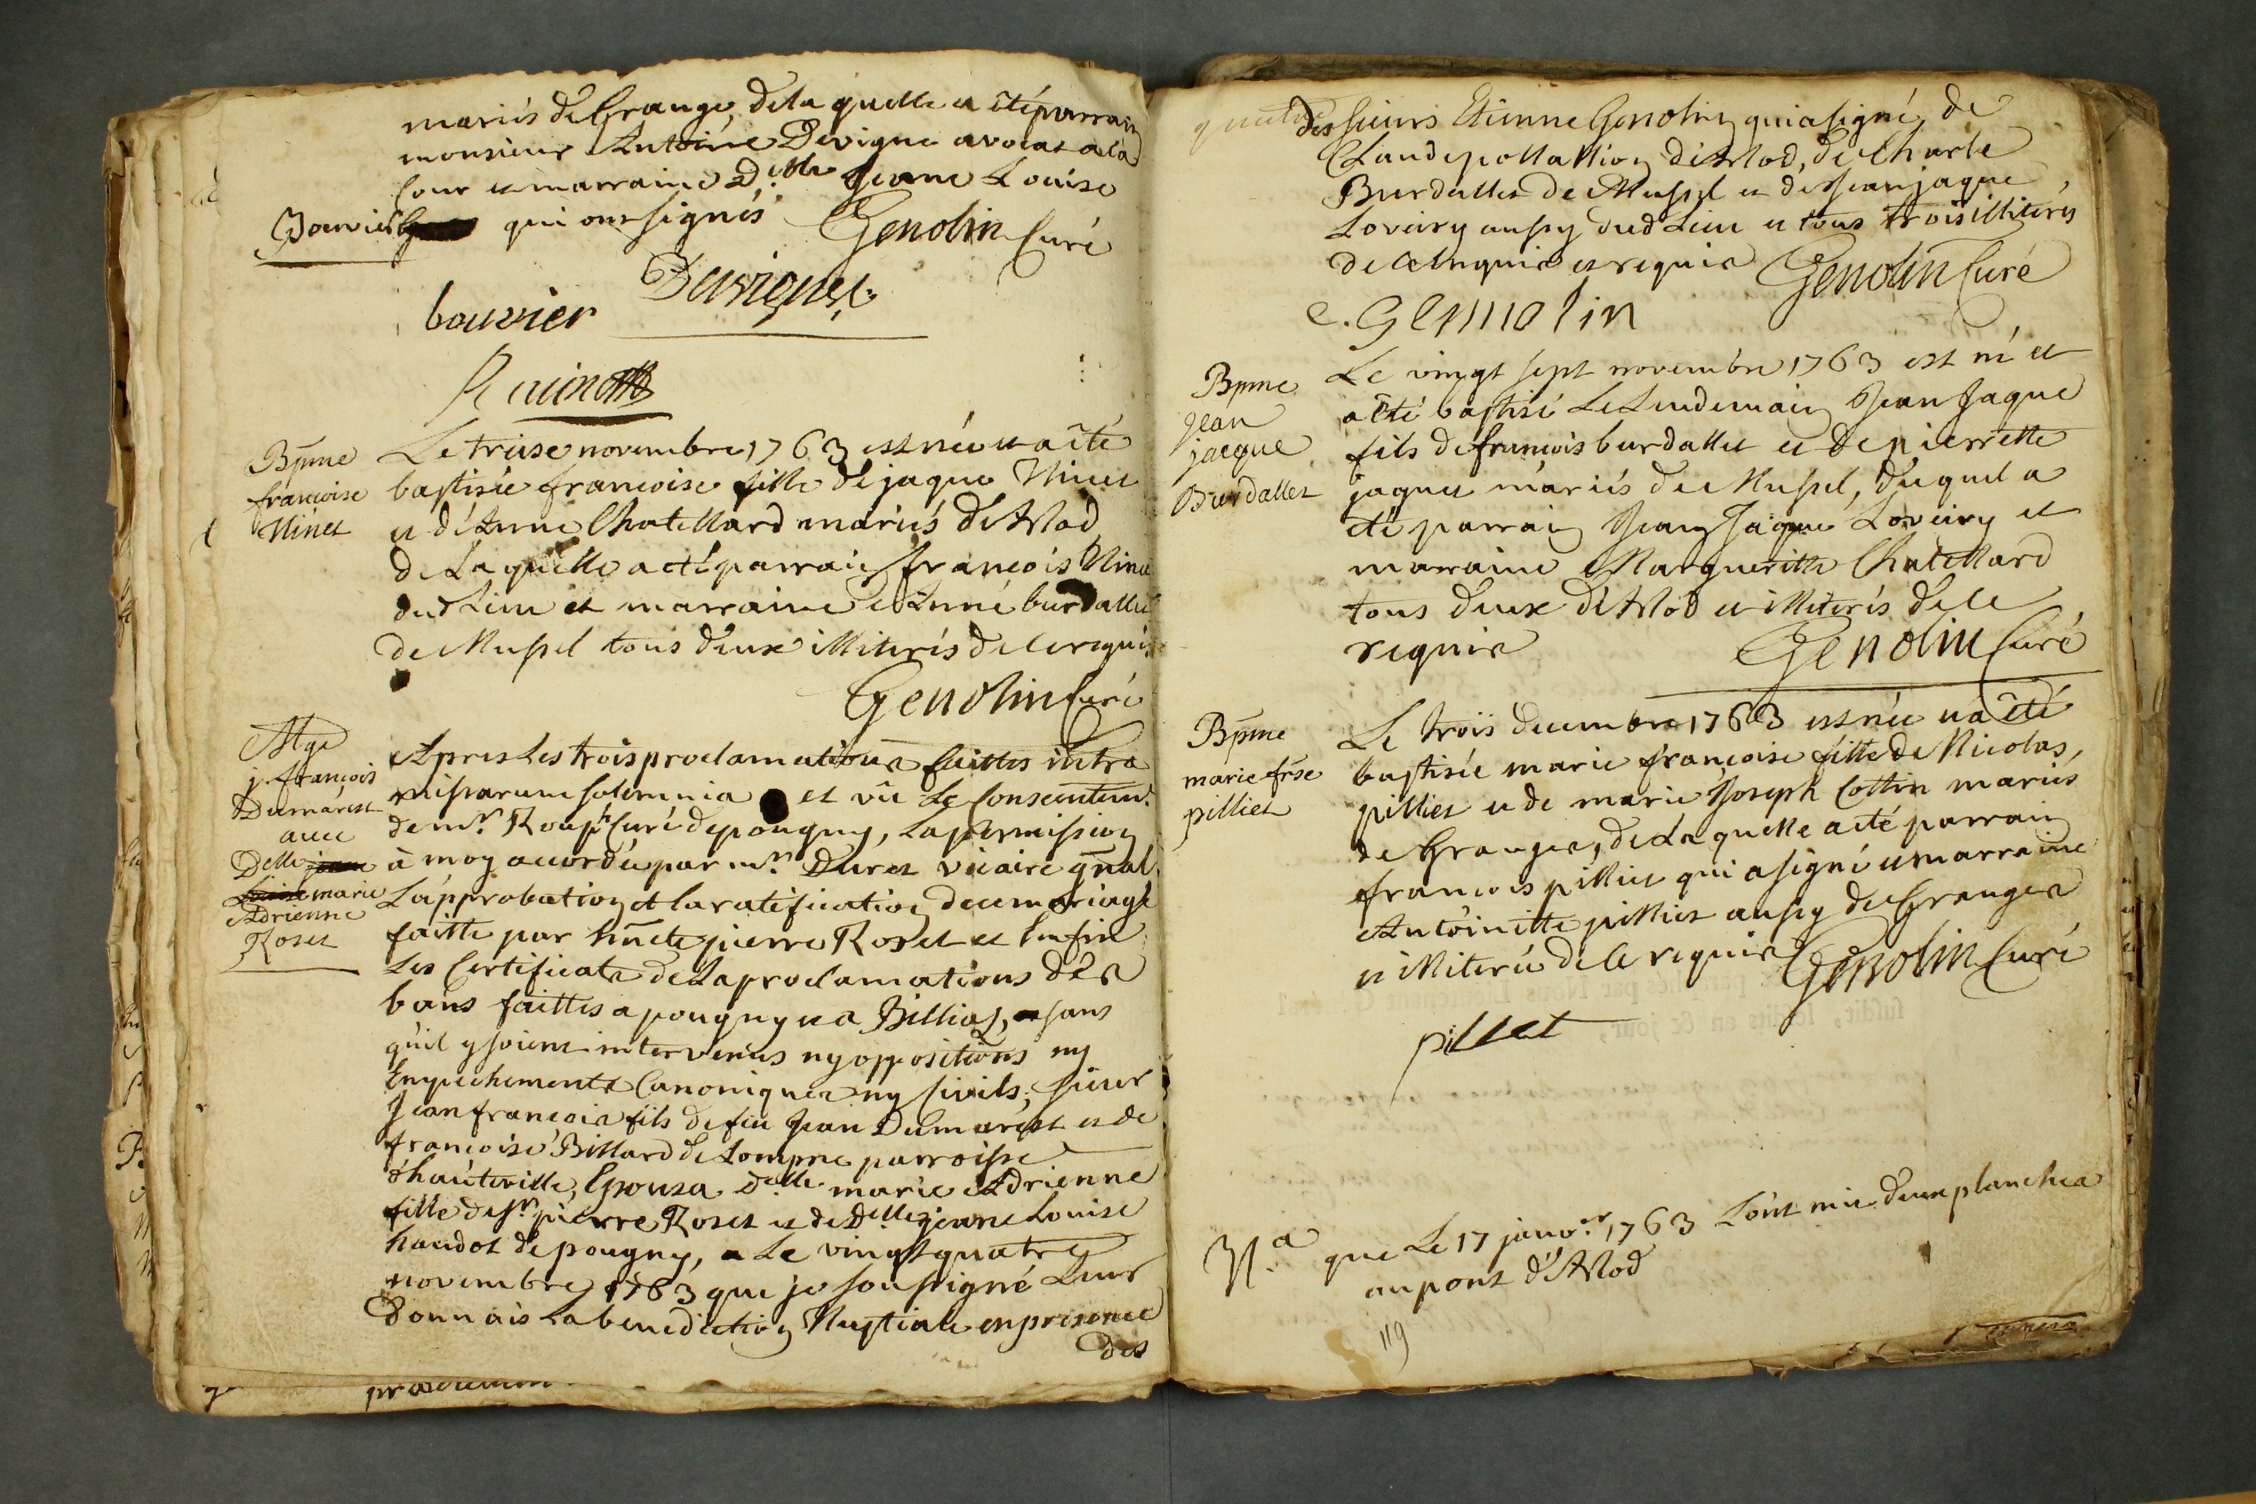 mariés de Grange, dela quelle a êté parrain
monsieur Antoine Devigne avocat a la
Cour et marraine Delle Jeanne Louise
Bouvier qui ont signés Genolin Curé
bouvier Devigne
Le treise novembre 1763 est née et a êté
Bpme
francoise
Ninet
baptisée francoise fille de jaque Ninet
et d'Anne Chatellard mariés d'Arlod
de Laquelle a eté parrain francois Ninet
dud Lieu et marraine Anne burdallet
de Mussel tous deux illiterés de ce requis
Genolin Curé
Mge
j. françois
Dumarest
avec
Delle
marie
Adrienne
Roset
Apres Les trois proclamations faittes intra
missarum solemnia et vû Le Consentem.t
de mr. Rouph Curé de pougny, La permission
à moy accordée par mr. Duret vicaire gñal
L'approbation et la ratification de ce mariage
faitte par hñete pierre Roset et Enfin
Les Certificats de La proclamations des
bans faittes a pougny et a Billiaz, sans
qu'il y soient intervenus ny oppositions ny
Empechements Canoniques ny Civils, sieur
Jean francois fils de feu Jean Dumarest et de
francoise Billard de Lompne parroisse
d'hauteville, Epousa Delle marie Adrienne
fille de Sr. pierre Roset et de Delle jeanne Louise
haudot de pougny, Le vingt quatre
novembre 1763 que je soussigné Leur
Donnais La benediction Nuptiale en presence
des
des sieurs Etienne Genolin qui a signé, de
Claude d'Arlod, de Charle
Burdallet de Mussel et de Jean jaque
Loveiry aussy dud Lieu et tous trois illiterés
de ce enquis et requis Genolin Curé
e. Gennolin
Bpme
jean
jacque
Burdallet
Le vingt sept novembre 1763 est né et
a êté baptisé Le Lendemain Jean Jaque
fils de francois burdallet et de pierrette
jaquet mariés de Mussel, du quel a
eté parrain Jean Jaque Loveiry et
marraine Margueritte Chatellard
tous deux d'Arlod et illiterés de ce
requis Genolin Curé
Bpme
marie frse
pilliet
Le trois decembre 1763 est née et a êté
baptisée marie françoise fille de Nicolas
pilliet et de marie Joseph Cottin mariés
de Granges, de La quelle a eté parrain
francois pilliet qui a signé et marraine
Antoinette pilliet aussy de Granges
et illiterée de ce requis Genolin Curé
pilliet
Na que Le 17 janvr. 1763 L'ont mis deux planches
au pont d'Arlod
119